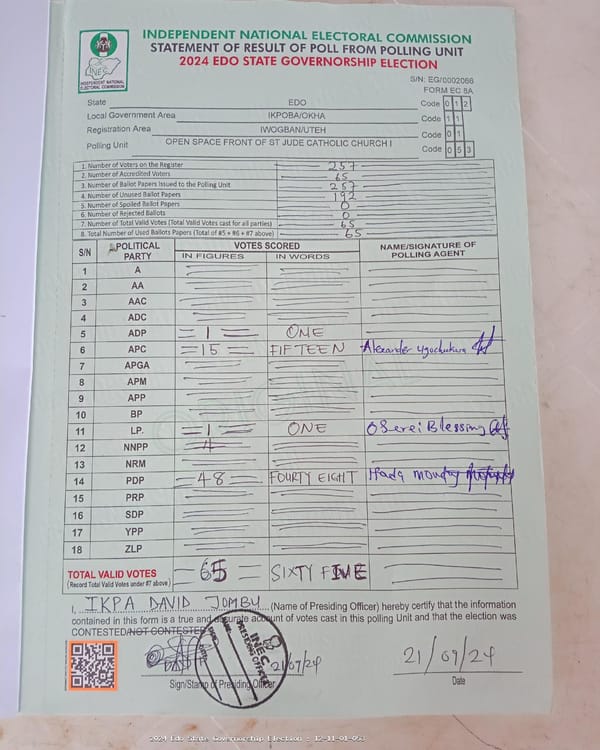 INDEPENDENT NATIONAL ELECTORAL COMMISSION
STATEMENT OF RESULT OF POLL FROM POLLING UNIT
2024 EDO STATE GOVERNORSHIP ELECTION
INEC
INDEPENDENT NATIONAL ELECTORAL COMMISSION
S/N: EG/0002066
FORM EC 8A
State EDO Code 0 1 2
Local Government Area IKPOBA/OKHA Code 1 1
Registration Area IWOGBAN/UTEH Code 0 1
Polling Unit OPEN SPACE FRONT OF ST JUDE CATHOLIC CHURCH I Code 0 5 3
1. Number of Voters on the Register 257
2. Number of Accredited Voters 65
3. Number of Ballot Papers Issued to the Polling Unit 257
4. Number of Unused Ballot Papers 192
5. Number of Spoiled Ballot Papers 0
6. Number of Rejected Ballots 0
7. Number of Total Valid Votes (Total Valid Votes cast for all parties) 65
8. Total Number of Used Ballots Papers (Total of #5 + #6 + #7 above) 65
S/N POLITICAL PARTY VOTES SCORED NAME/SIGNATURE OF POLLING AGENT
IN FIGURES IN WORDS
1 A
2 AA
3 AAC
4 ADC
5 ADP 1 ONE
6 APC 15 FIFTEEN Alexander Ugochukwu
7 APGA
8 APM
9 APP
10 BP
11 LP. 1 ONE OSerei Blessing
12 NNPP
13 NRM
14 PDP 48 FOURTY EIGHT Monday
15 PRP
16 SDP
17 YPP
18 ZLP
TOTAL VALID VOTES 65 SIXTY FIVE
(Record Total Valid Votes under #7 above)
I, IKPA DAVID JOMBU (Name of Presiding Officer) hereby certify that the information
contained in this form is a true and accurate account of votes cast in this polling Unit and that the election was
CONTESTED/NOT CONTESTED
INEC
PRESIDING OFFICER
21/09/24
Sign/Stamp of Presiding Officer
21/09/24
Date
2024 Edo State Governorship Election : 12-11-01-053